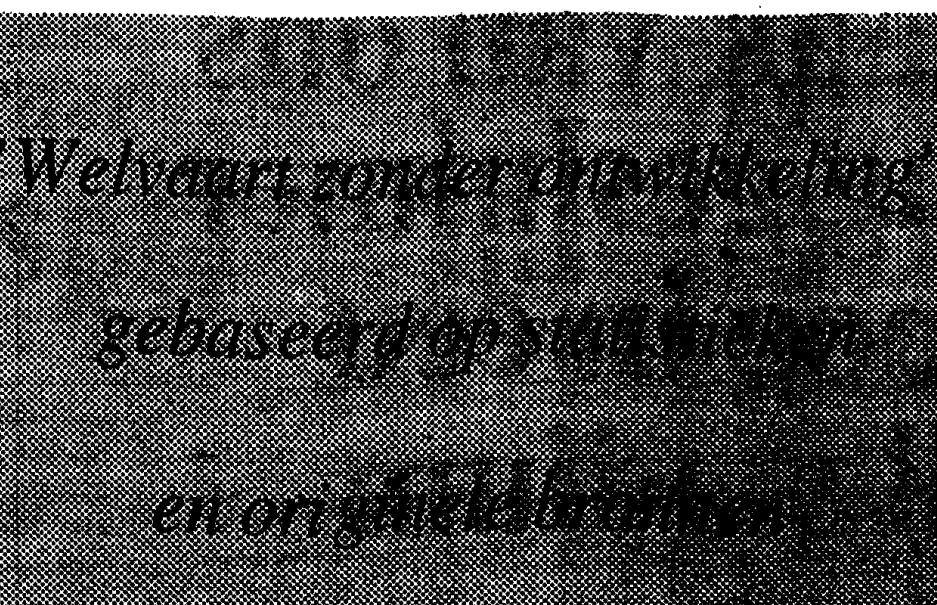 'Welvaart zonder ontwikkeling'
gebaseerd op
en originele bronnen